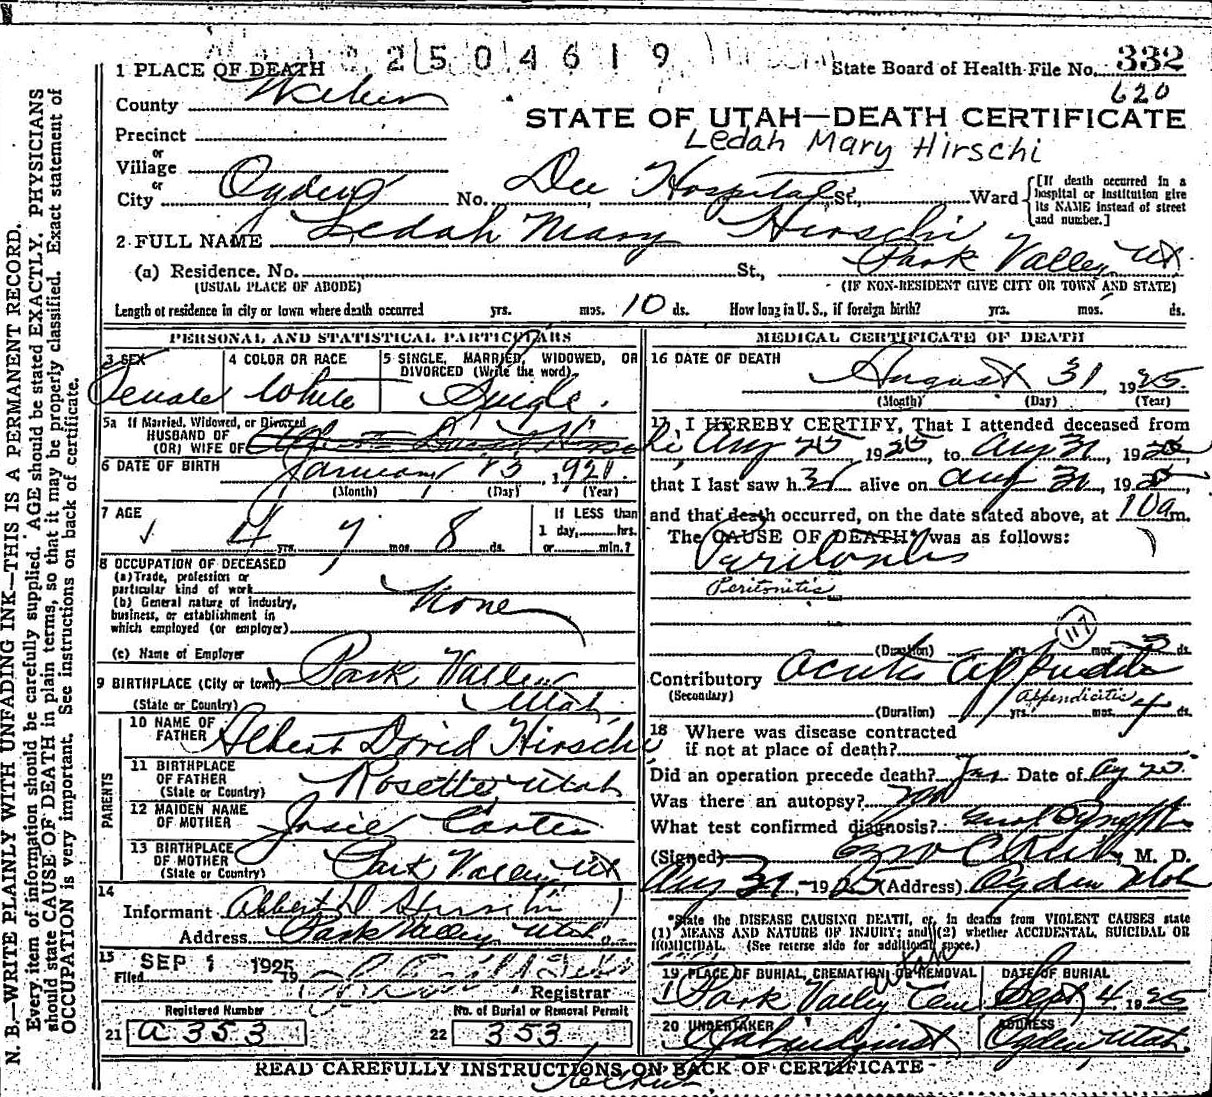 2504619
State Board of Health File No. 332
620
1 PLACE OF DEATH
County Weber
STATE OF UTAH—DEATH CERTIFICATE
Ledah Mary Hirschi
Precinct
or
Village
or
City Ogden No. Dee Hospital St., Ward
[If death occurred in a hospital or institution give its NAME instead of street and number.]
2 FULL NAME Ledah Mary Hirschi
(a) Residence. No. St., Park Valley Ut
(USUAL PLACE OF ABODE) (IF NON-RESIDENT GIVE CITY OR TOWN AND STATE)
Length of residence in city or town where death occurred yrs. mos. 10 ds. How long in U. S., if foreign birth? yrs. mos. ds.
PERSONAL AND STATISTICAL PARTICULARS
3 SEX Female
4 COLOR OR RACE White
5 SINGLE, MARRIED, WIDOWED, OR DIVORCED (Write the word) Single.
5a If Married, Widowed, or Divorced
HUSBAND OF
(OR) WIFE OF
6 DATE OF BIRTH January 23, 1921.
(Month) (Day) (Year)
7 AGE
4 yrs. 7 mos. 8 ds.
If LESS than
1 day, hrs.
or min.?
8 OCCUPATION OF DECEASED
(a) Trade, profession or
particular kind of work
(b) General nature of industry,
business, or establishment in
which employed (or employer)
None
(c) Name of Employer
9 BIRTHPLACE (City or town) Park Valley
(State or Country) Utah
PARENTS
10 NAME OF FATHER Albert David Hirschi
11 BIRTHPLACE OF FATHER (State or Country) Rosette Utah
12 MAIDEN NAME OF MOTHER Josie Carter
13 BIRTHPLACE OF MOTHER (State or Country) Park Valley Ut
14
Informant Albert D Hirschi
Address Park Valley Utah
15 Filed SEP 1 1925 19
Registrar
Registered Number
21 a 353
No. of Burial or Removal Permit
22 353
MEDICAL CERTIFICATE OF DEATH
16 DATE OF DEATH
August 31, 1925.
(Month) (Day) (Year)
17 I HEREBY CERTIFY, That I attended deceased from
Aug 25 1925, to Aug 31, 1925
that I last saw h er alive on Aug 31, 1925,
and that death occurred, on the date stated above, at 10 a m.
The CAUSE OF DEATH* was as follows:
Peritonitis
Peritonitis
117
(Duration) yrs. mos. ds.
Contributory Acute Appendicitis
(Secondary) Appendicitis
(Duration) yrs. mos. ds.
18 Where was disease contracted
if not at place of death?
Did an operation precede death? Yes Date of Aug 25
Was there an autopsy?
What test confirmed diagnosis?
(Signed) M. D.
Aug 31, 1925 (Address) Ogden Utah
*State the DISEASE CAUSING DEATH, or, in deaths from VIOLENT CAUSES state
(1) MEANS AND NATURE OF INJURY; and (2) whether ACCIDENTAL, SUICIDAL OR
HOMICIDAL. (See reverse side for additional space.)
19 PLACE OF BURIAL, CREMATION, OR REMOVAL
Park Valley Cem Utah
DATE OF BURIAL
Sept 4 1925
20 UNDERTAKER
ADDRESS
Ogden Utah.
READ CAREFULLY INSTRUCTIONS ON BACK OF CERTIFICATE
N. B.—WRITE PLAINLY WITH UNFADING INK—THIS IS A PERMANENT RECORD.
Every item of information should be carefully supplied. AGE should be stated EXACTLY. PHYSICIANS
should state CAUSE OF DEATH in plain terms, so that it may be properly classified. Exact statement of
OCCUPATION is very important. See instructions on back of certificate.